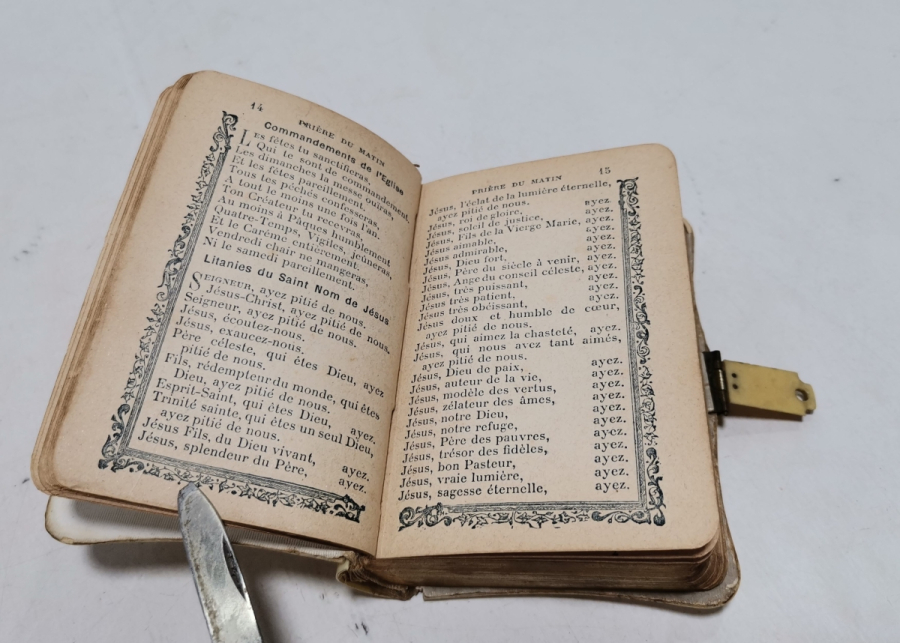 14
PRIÈRE DU MATIN
Commandements de l'Eglise
LES fêtes tu sanctifieras,
Qui te sont de commandement.
Les dimanches la messe ouïras,
Et les fêtes pareillement.
Tous tes péchés confesseras,
A tout le moins une fois l'an.
Ton Créateur tu recevras,
Au moins à Pâques humblement
Quatre-Temps, Vigiles, jeûneras,
Et le Carême entièrement.
Vendredi chair ne mangeras,
Ni le samedi pareillement.
Litanies du Saint Nom de Jésus
SEIGNEUR, ayez pitié de nous.
Jésus-Christ, ayez pitié de nous.
Seigneur, ayez pitié de nous.
Jésus, écoutez-nous.
Jésus, exaucez-nous.
Père céleste, qui êtes Dieu, ayez
pitié de nous.
Fils, rédempteur du monde, qui êtes
Dieu, ayez pitié de nous.
Esprit-Saint, qui êtes Dieu, ayez.
Trinité sainte, qui êtes un seul Dieu,
ayez pitié de nous.
Jésus Fils, du Dieu vivant, ayez.
Jésus, splendeur du Père, ayez.
PRIÈRE DU MATIN 15
Jésus, l'éclat de la lumière éternelle,
ayez pitié de nous.
Jésus, roi de gloire, ayez.
Jésus, soleil de justice, ayez.
Jésus, Fils de la Vierge Marie, ayez.
Jésus aimable, ayez.
Jésus admirable, ayez.
Jésus, Dieu fort, ayez.
Jésus, Père du siècle à venir, ayez.
Jésus, Ange du conseil céleste, ayez.
Jésus, très puissant, ayez.
Jésus très patient, ayez.
Jésus très obéissant, ayez.
Jésus doux et humble de cœur,
ayez pitié de nous.
Jésus, qui aimez la chasteté, ayez.
Jésus, qui nous avez tant aimés,
ayez pitié de nous.
Jésus, Dieu de paix, ayez.
Jésus, auteur de la vie, ayez.
Jésus, modèle des vertus, ayez.
Jésus, zélateur des âmes, ayez.
Jésus, notre Dieu, ayez.
Jésus, notre refuge, ayez.
Jésus, Père des pauvres, ayez.
Jésus, trésor des fidèles, ayez.
Jésus, bon Pasteur, ayez.
Jésus, vraie lumière, ayez.
Jésus, sagesse éternelle, ayez.